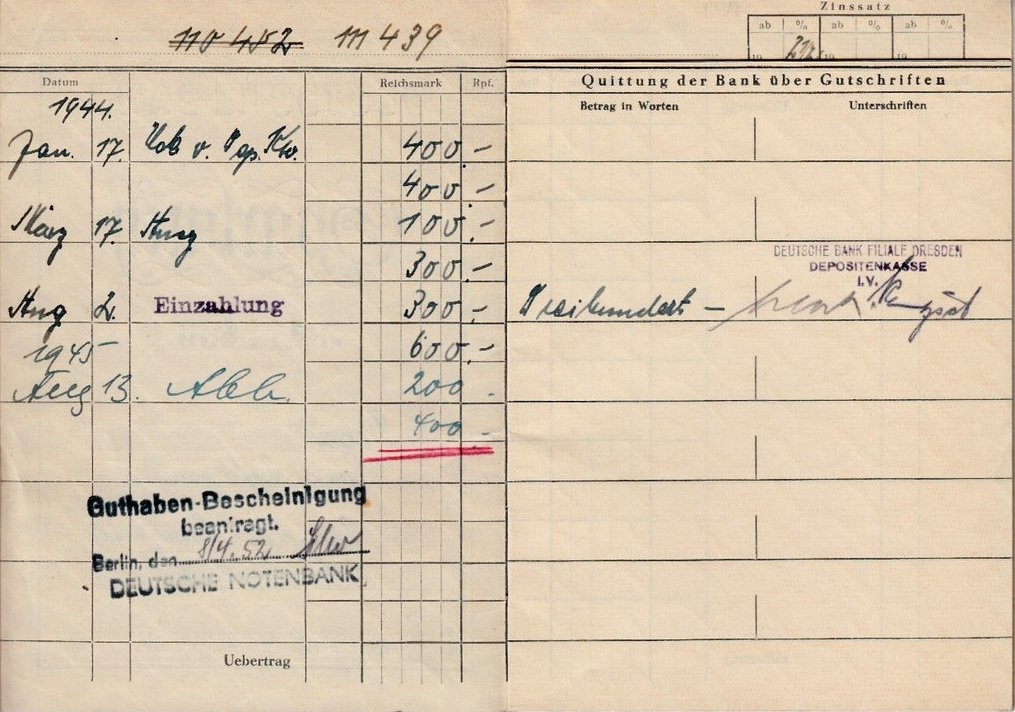 Zinssatz
ab % ab % ab %
19 2½ 19 19
110 452 111 439
Datum Reichsmark Rpf.
Quittung der Bank über Gutschriften
Betrag in Worten Unterschriften
1944.
Jan. 17. v. 400.-
400.-
März 17. 100.-
300.-
DEUTSCHE BANK FILIALE DRESDEN
DEPOSITENKASSE
I.V.
Aug 2. Einzahlung 300.- Dreihundert —
600.-
1945
Aug 13. Abh. 200.
400.-
Guthaben-Bescheinigung
beantragt.
Berlin, den 8/4.52
DEUTSCHE NOTENBANK
Uebertrag